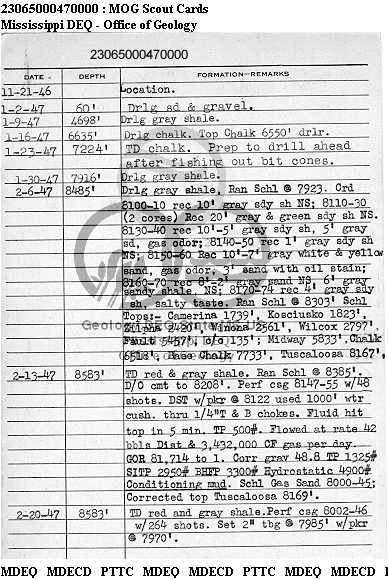 23065000470000 : MOG Scout Cards
Mississippi DEQ - Office of Geology
23065000470000
DATE - DEPTH FORMATION-REMARKS
11-21-46 Location.
1-2-47 60' Drlg sd & gravel.
1-9-47 4698' Drlg gray shale.
1-16-47 6635' Drlg chalk. Top Chalk 6550' drlr.
1-23-47 7224' TD chalk. Prep to drill ahead
after fishing out bit cones.
1-30-47 7916' Drlg gray shale.
2-6-47 8485' Drlg gray shale, Ran Schl @ 7923. Crd
8100-10 rec 10' gray sdy sh NS; 8110-30
(2 cores) Rec 20' gray & green sdy sh NS.
8130-40 rec 10'-5' gray sdy sh, 5' gray
sd, gas odor; 8140-50 rec 1' gray sdy sh
NS; 8150-60 Rec 10'-7' gray white & yellow
sand, gas odor, 3' sand with oil stain;
8160-70 rec 8'-2' gray sand NS, 6' gray
sandy shale, NS; 8170-74 rec 4' gray sdy
sh, salty taste. Ran Schl @ 8303' Schl
Tops:- Camerina 1739', Kosciusko 1823',
Zilpha 2420', Winona 2561', Wilcox 2797'.
Fault 5457', c/o 135'; Midway 5833', Chalk
6518', Base Chalk 7733', Tuscaloosa 8167',
2-13-47 8583' TD red & gray shale. Ran Schl @ 8385'.
D/O cmt to 8208'. Perf csg 8147-55 w/48
shots. DST w/pkr @ 8122 used 1000' wtr
cush. thru 1/4"T & B chokes. Fluid hit
top in 5 min. TP 500#. Flowed at rate 42
bbls Dist & 3,432,000 CF gas per day.
GOR 81,714 to 1. Corr grav 48.8 TP 1325#
SITP 2950# BHFP 3300# Hydrostatic 4900#
Conditioning mud. Schl Gas Sand 8000-45;
Corrected top Tuscaloosa 8169'.
2-20-47 8583' TD red and gray shale.Perf csg 8002-46
w/264 shots. Set 2" tbg @ 7985' w/pkr
@ 7970'.
MDEQ MDECD PTTC MDEQ MDECD PTTC MDEQ MDECD